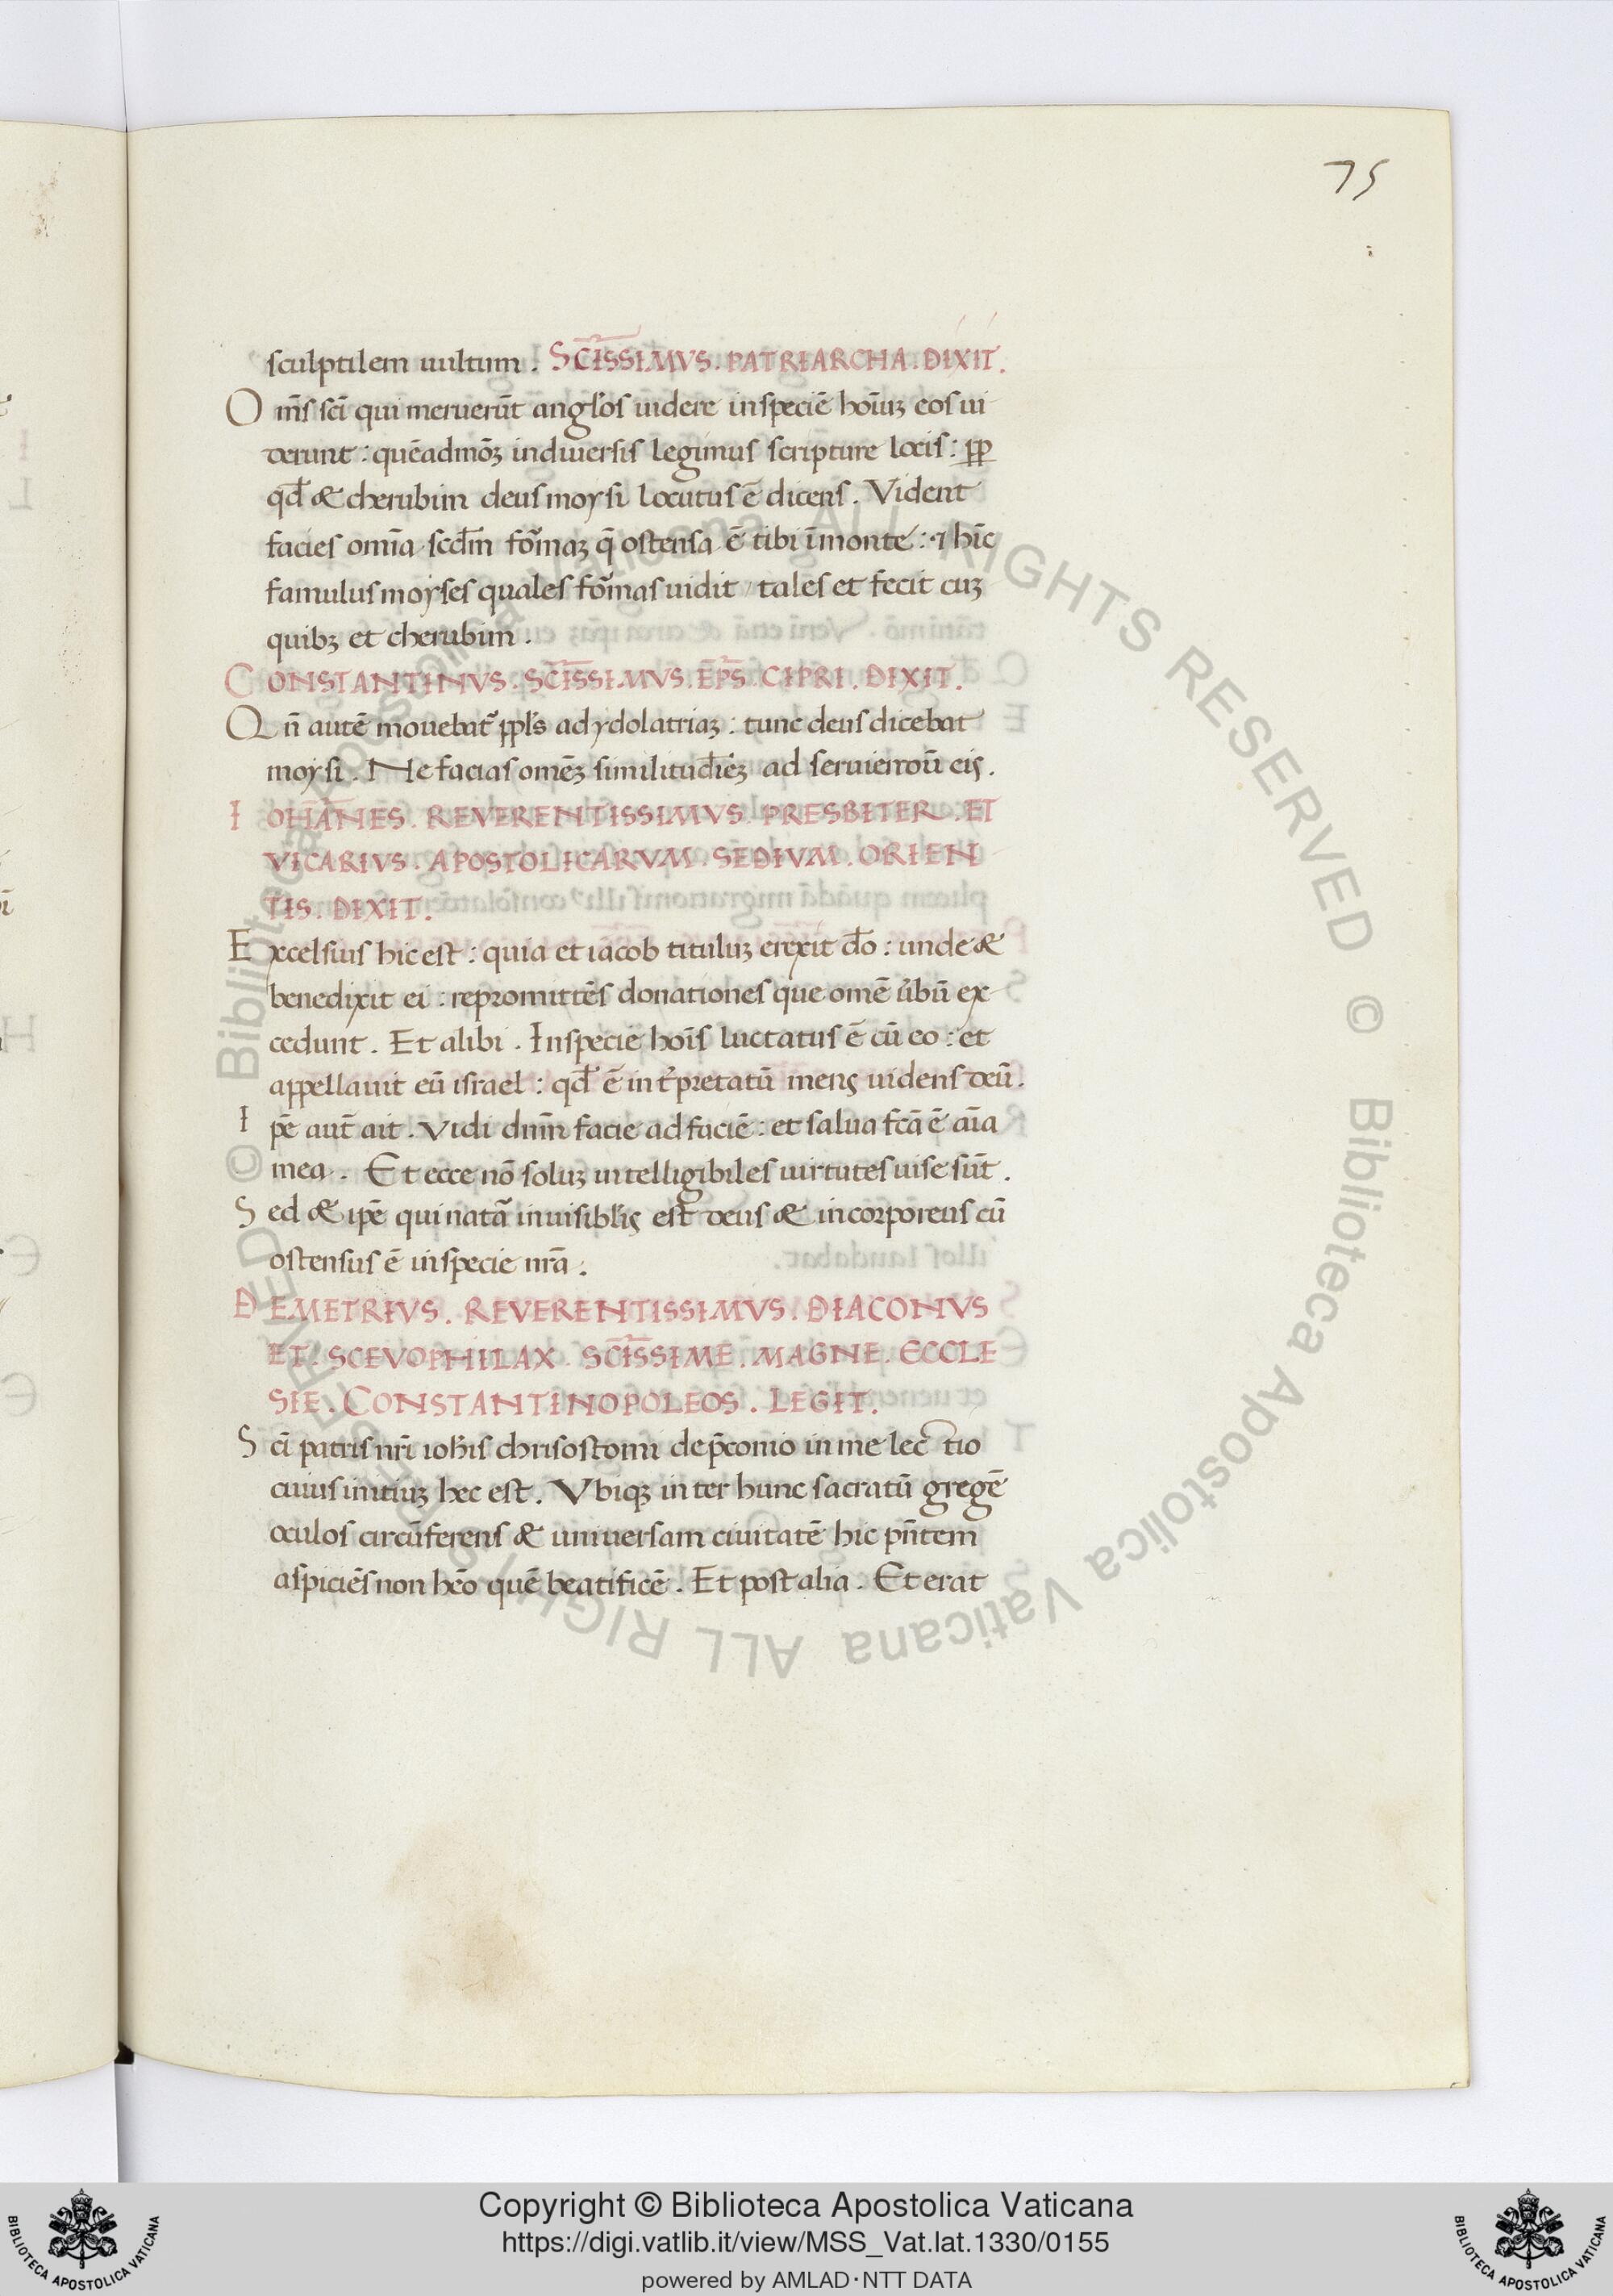 75
sculptilem uultum. SC̄ISSIMVS. PATRIARCHA. DIXIT.
Om̄s sc̄i qui meruer̄ut angl̓os uidere in speciē hoīuꝫ eos ui
derunt : quēadmōꝫ in diuersis legimus scripture locis : ꝓp
qd̄ & cherubim deus moysi locutus ē dicens. Vident
facies om̄ia scd̄m for̄maꝫ q̄ ostensa ē tibi ī monte : ⁊ hīc
famulus moyses quales for̄mas uidit / tales et fecit cuꝫ
quibꝫ et cherubim.
CONSTANTINVS. SC̄ISSIMVS. EP̄S. CIPRI. DIXIT.
Qn̄ autē mouebat᷑ ppl̓s ad ydolatriaꝫ : tunc deus dicebat
moysi. Ne facias omēꝫ similitud̄iēꝫ ad seruiendū eis.
IOHĀNES. REVERENTISSIMVS. PRESBITER. ET
VICARIVS. APOSTOLICARVM. SEDIVM. ORIEN
TIS. DIXIT.
Excelsius hic est : quia et iacob tituluꝫ erexit dō : unde &
benedixit ei : repromittēs donationes que omē u̓bū ex
cedunt. Et alibi. In specie hoīs luctatus ē cū eo : et
appellauit eū israel : qd̄ ē int̓pretatū mens uidens deū.
Ip̄e aut̄ ait. Vidi dn̄m facie ad faciē : et salua fc̄a ē aīa
mea. Et ecce nō soluꝫ intelligibiles uirtutes uise sūt.
Sed & ip̄e qui natā inuisibl̓is est deus & incorporeus cū
ostensus ē in specie nr̄a.
DEMETRIVS. REVERENTISSIMVS. DIACONVS
ET. SCEVOPHILAX. SC̄ISSIME. MAGNE. ECCLE
SIE. CONSTANTINOPOLEOS. LEGIT.
Sc̄i patris nr̄i ioh̄is chrisostomi de p̄conio in me lec tio
cuius initiuꝫ hec est. Vbiqꝫ inter hunc sacratū gregē
oculos circūferens & uniuersam ciuitatē hic pn̄tem
aspiciēs non hēo quē beatificē. Et post alia. Et erat
© Biblioteca Apostolica Vaticana ALL RIGHTS RESERVED © Biblioteca Apostolica Vaticana ALL RIGHTS RESERVED
BIBLIOTECA APOSTOLICA VATICANA
Copyright © Biblioteca Apostolica Vaticana
https://digi.vatlib.it/view/MSS_Vat.lat.1330/0155
powered by AMLAD·NTT DATA
BIBLIOTECA APOSTOLICA VATICANA